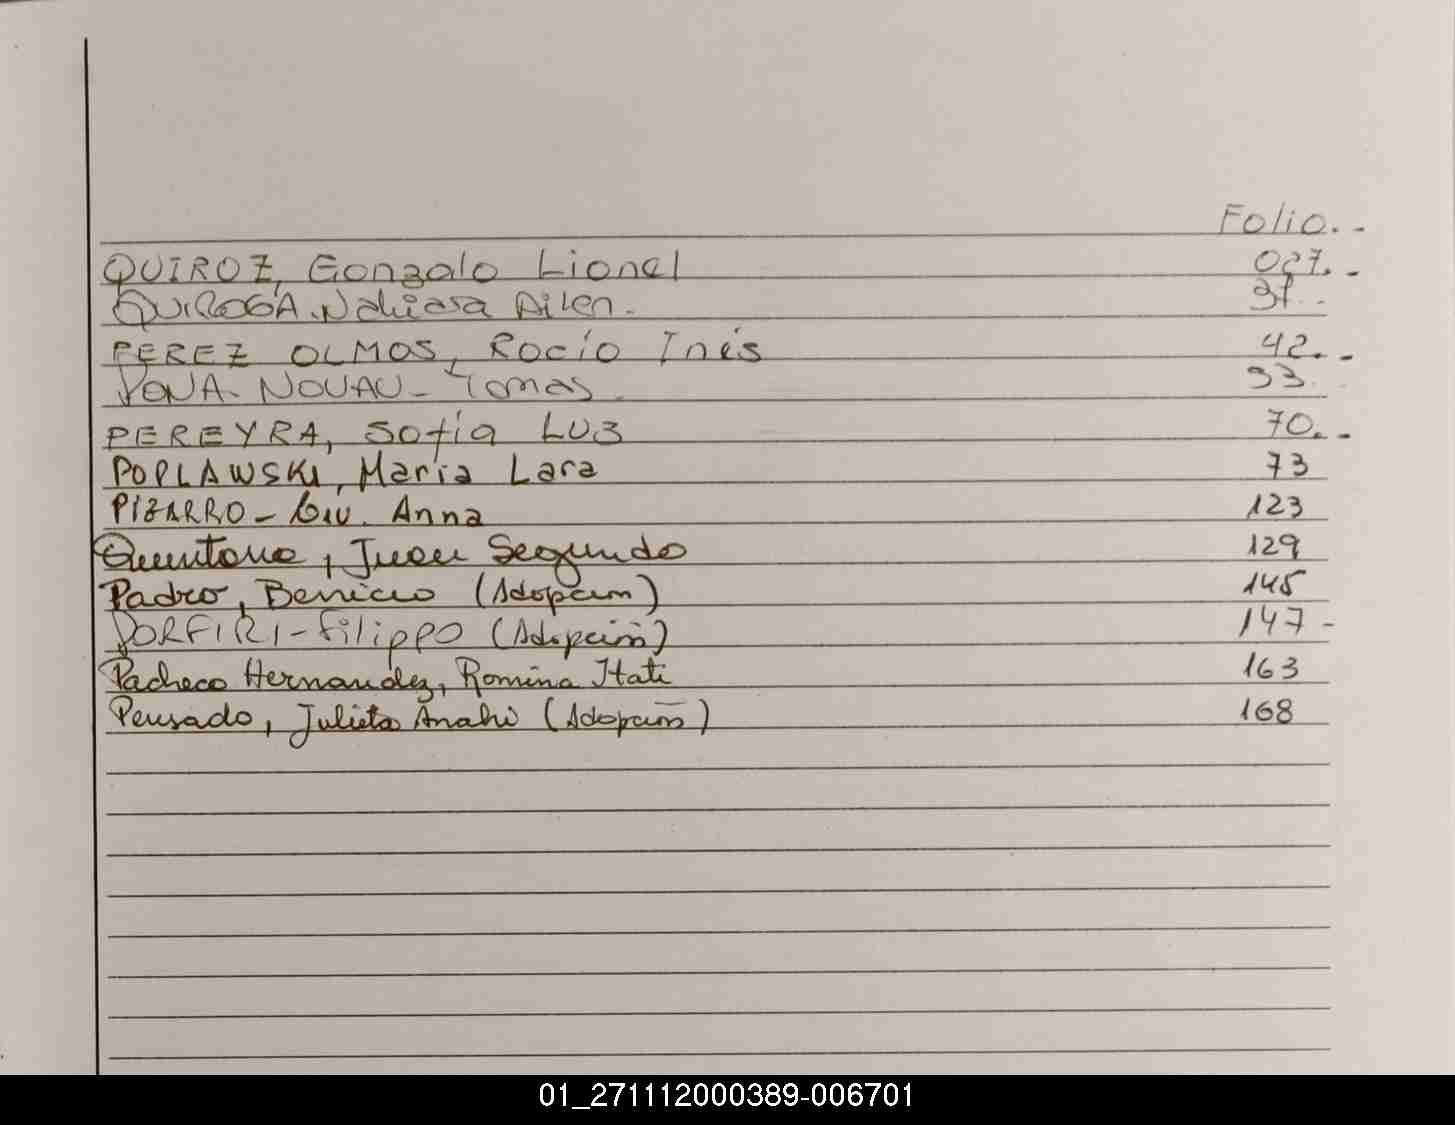 Folio.-
QUIROZ, Gonzalo Lionel 027.-
QUIROGA. Nahiara Ailen. 37..
PEREZ OLMOS, Rocío Inés 42.-
PONA. NOUAU- Tomas. 53.
PEREYRA, Sofía Luz 70.-
POPLAWSKI, Maria Lara 73
PIZARRO - Anna 123
Quintana, Juan Segundo 129
Padro, Benicio (Adopción) 145
PORFIRI-Filippo (Adopción) 147-
Pacheco Hernandez, Romina Itati 163
Pensado, Julieta Anahi (Adopción) 168
01_271112000389-006701